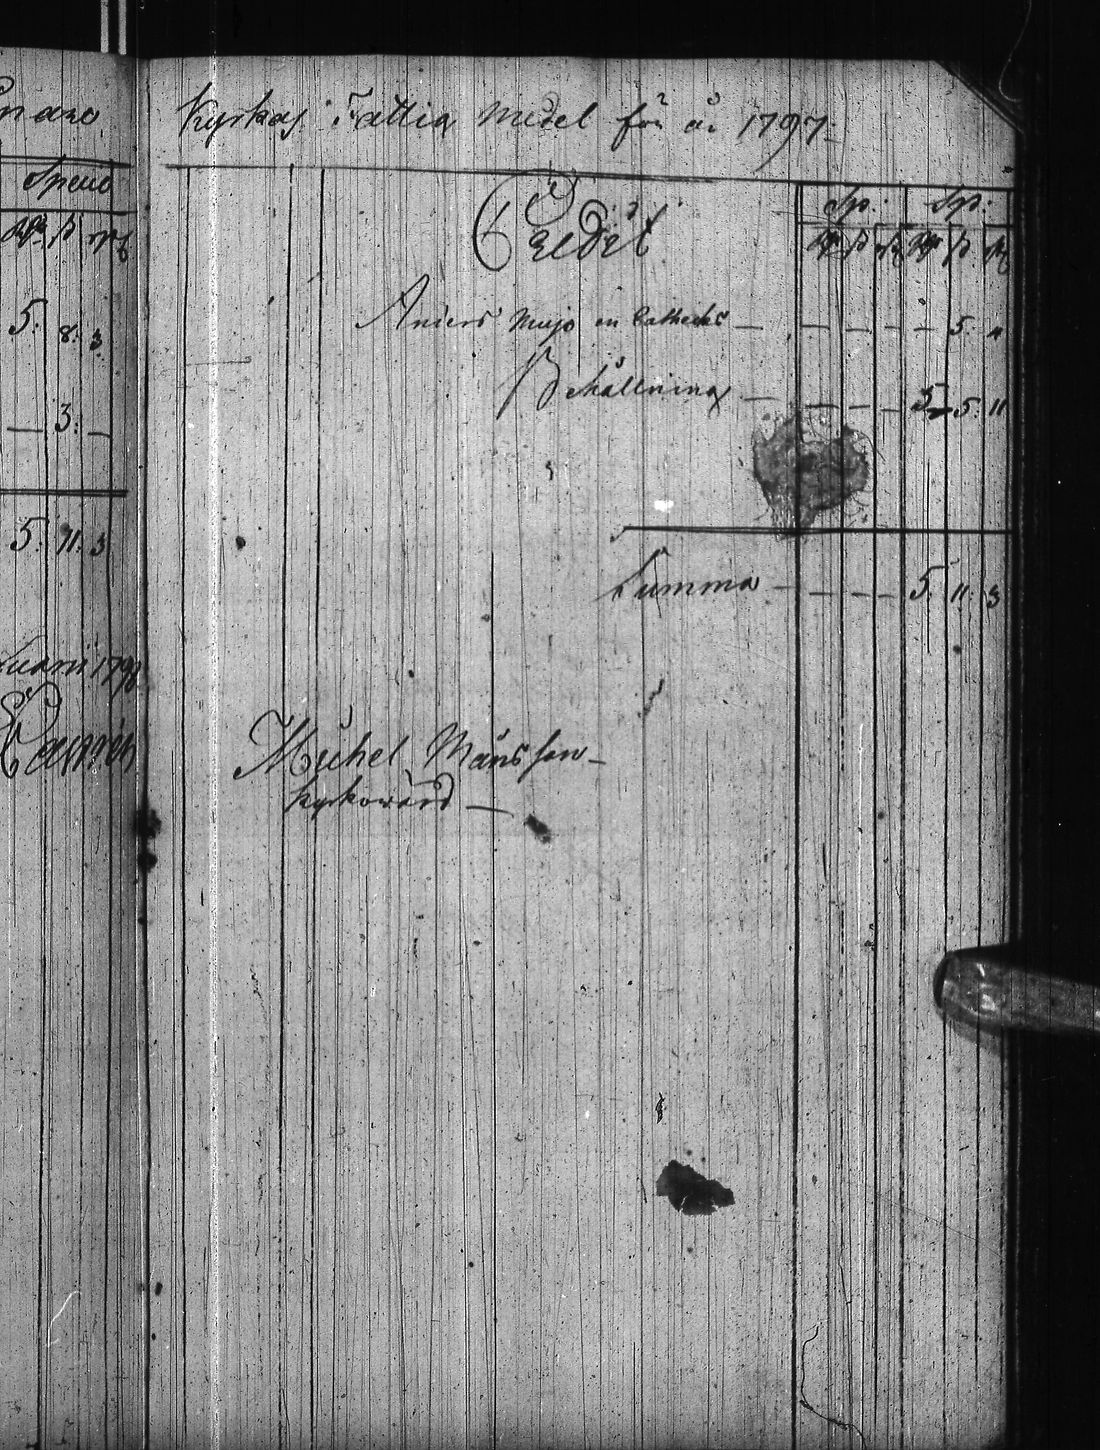 Enare
Specie
Rdr ß rst
5. 8. 3
— 3. —
5. 11. 3
1798
Kyrkas Fattig Medel för år 1797
Credit
Sp. Sp.
Rdr ß rst Rdr ß rst
Aniers Mujo en Cathechs — — — — — 5. 4
Behållning — — — — 5 5. 11
Summa — — — — 5. 11. 3
Michel Månsson
Kyrkovärd —